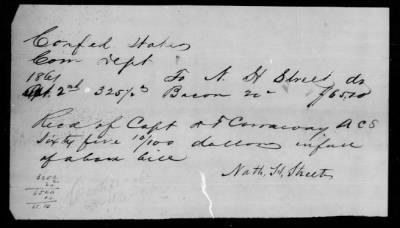 Confed States
Com Dept
1861 To N. H. Street dr
Oct. 2nd 325 1/2 Bacon 20c $65.10
Recd of Capt Carraway ACS
Sixty five 10/100 dollars in full
of above bill
Nath. H. Street